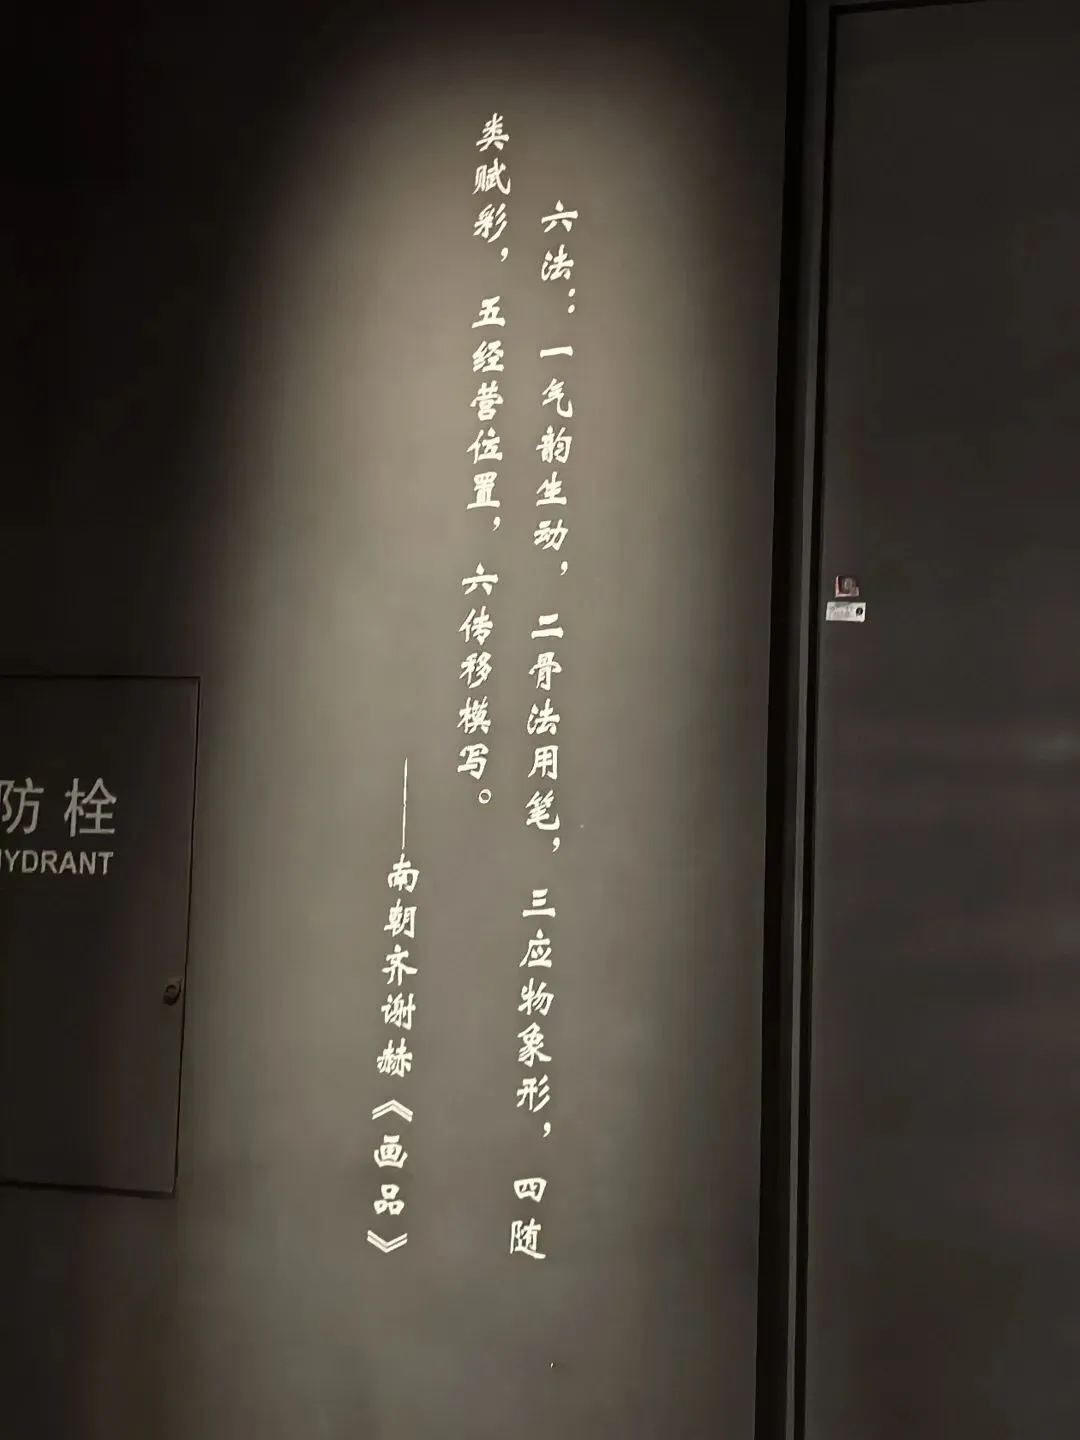 六法：一气韵生动，二骨法用笔，三应物象形，四随
类赋彩，五经营位置，六传移模写。
——南朝齐谢赫《画品》
防栓
HYDRANT